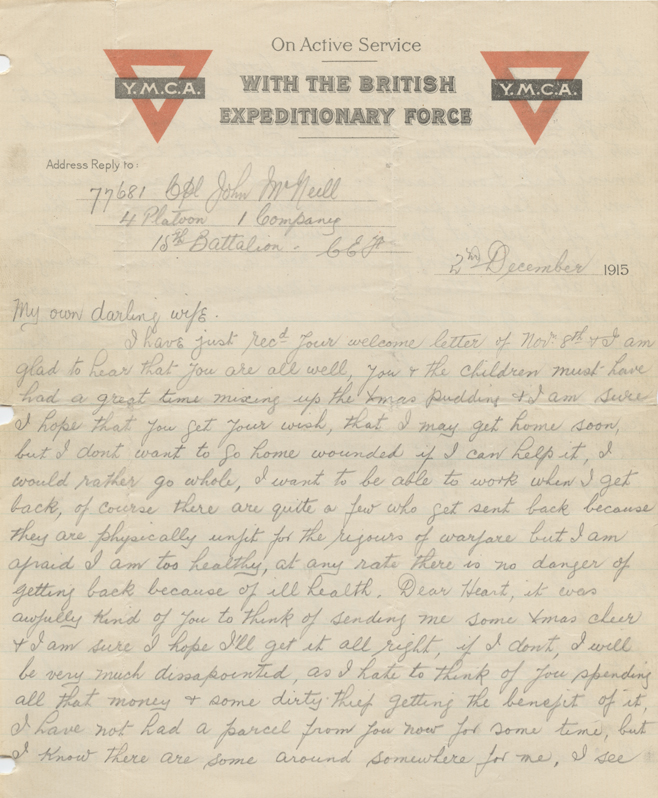 On Active Service
WITH THE BRITISH
EXPEDITIONARY FORCE
Y.M.C.A.
Y.M.C.A.
Address Reply to:
77681 Cpl John McNeill
4 Platoon 1 Company
15th Battalion. C E F
2nd December 1915
My own darling wife.
I have just recd your welcome letter of Nov. 8th & I am
glad to hear that you are all well, you & the children must have
had a great time mixing up the Xmas pudding & I am sure
I hope that you get your wish, that I may get home soon,
but I dont want to go home wounded if I can help it, I
would rather go whole, I want to be able to work when I get
back, of course there are quite a few who get sent back because
they are physically unfit for the rigours of warfare but I am
afraid I am too healthy, at any rate there is no danger of
getting back because of ill health. Dear Heart, it was
awfully kind of you to think of sending me some Xmas cheer
& I am sure I hope I'll get it all right, if I dont, I will
be very much dissapointed, as I hate to think of you spending
all that money & some dirty thief getting the benefit of it,
I have not had a parcel from you now for some time, but
I know there are some around somewhere for me, I see